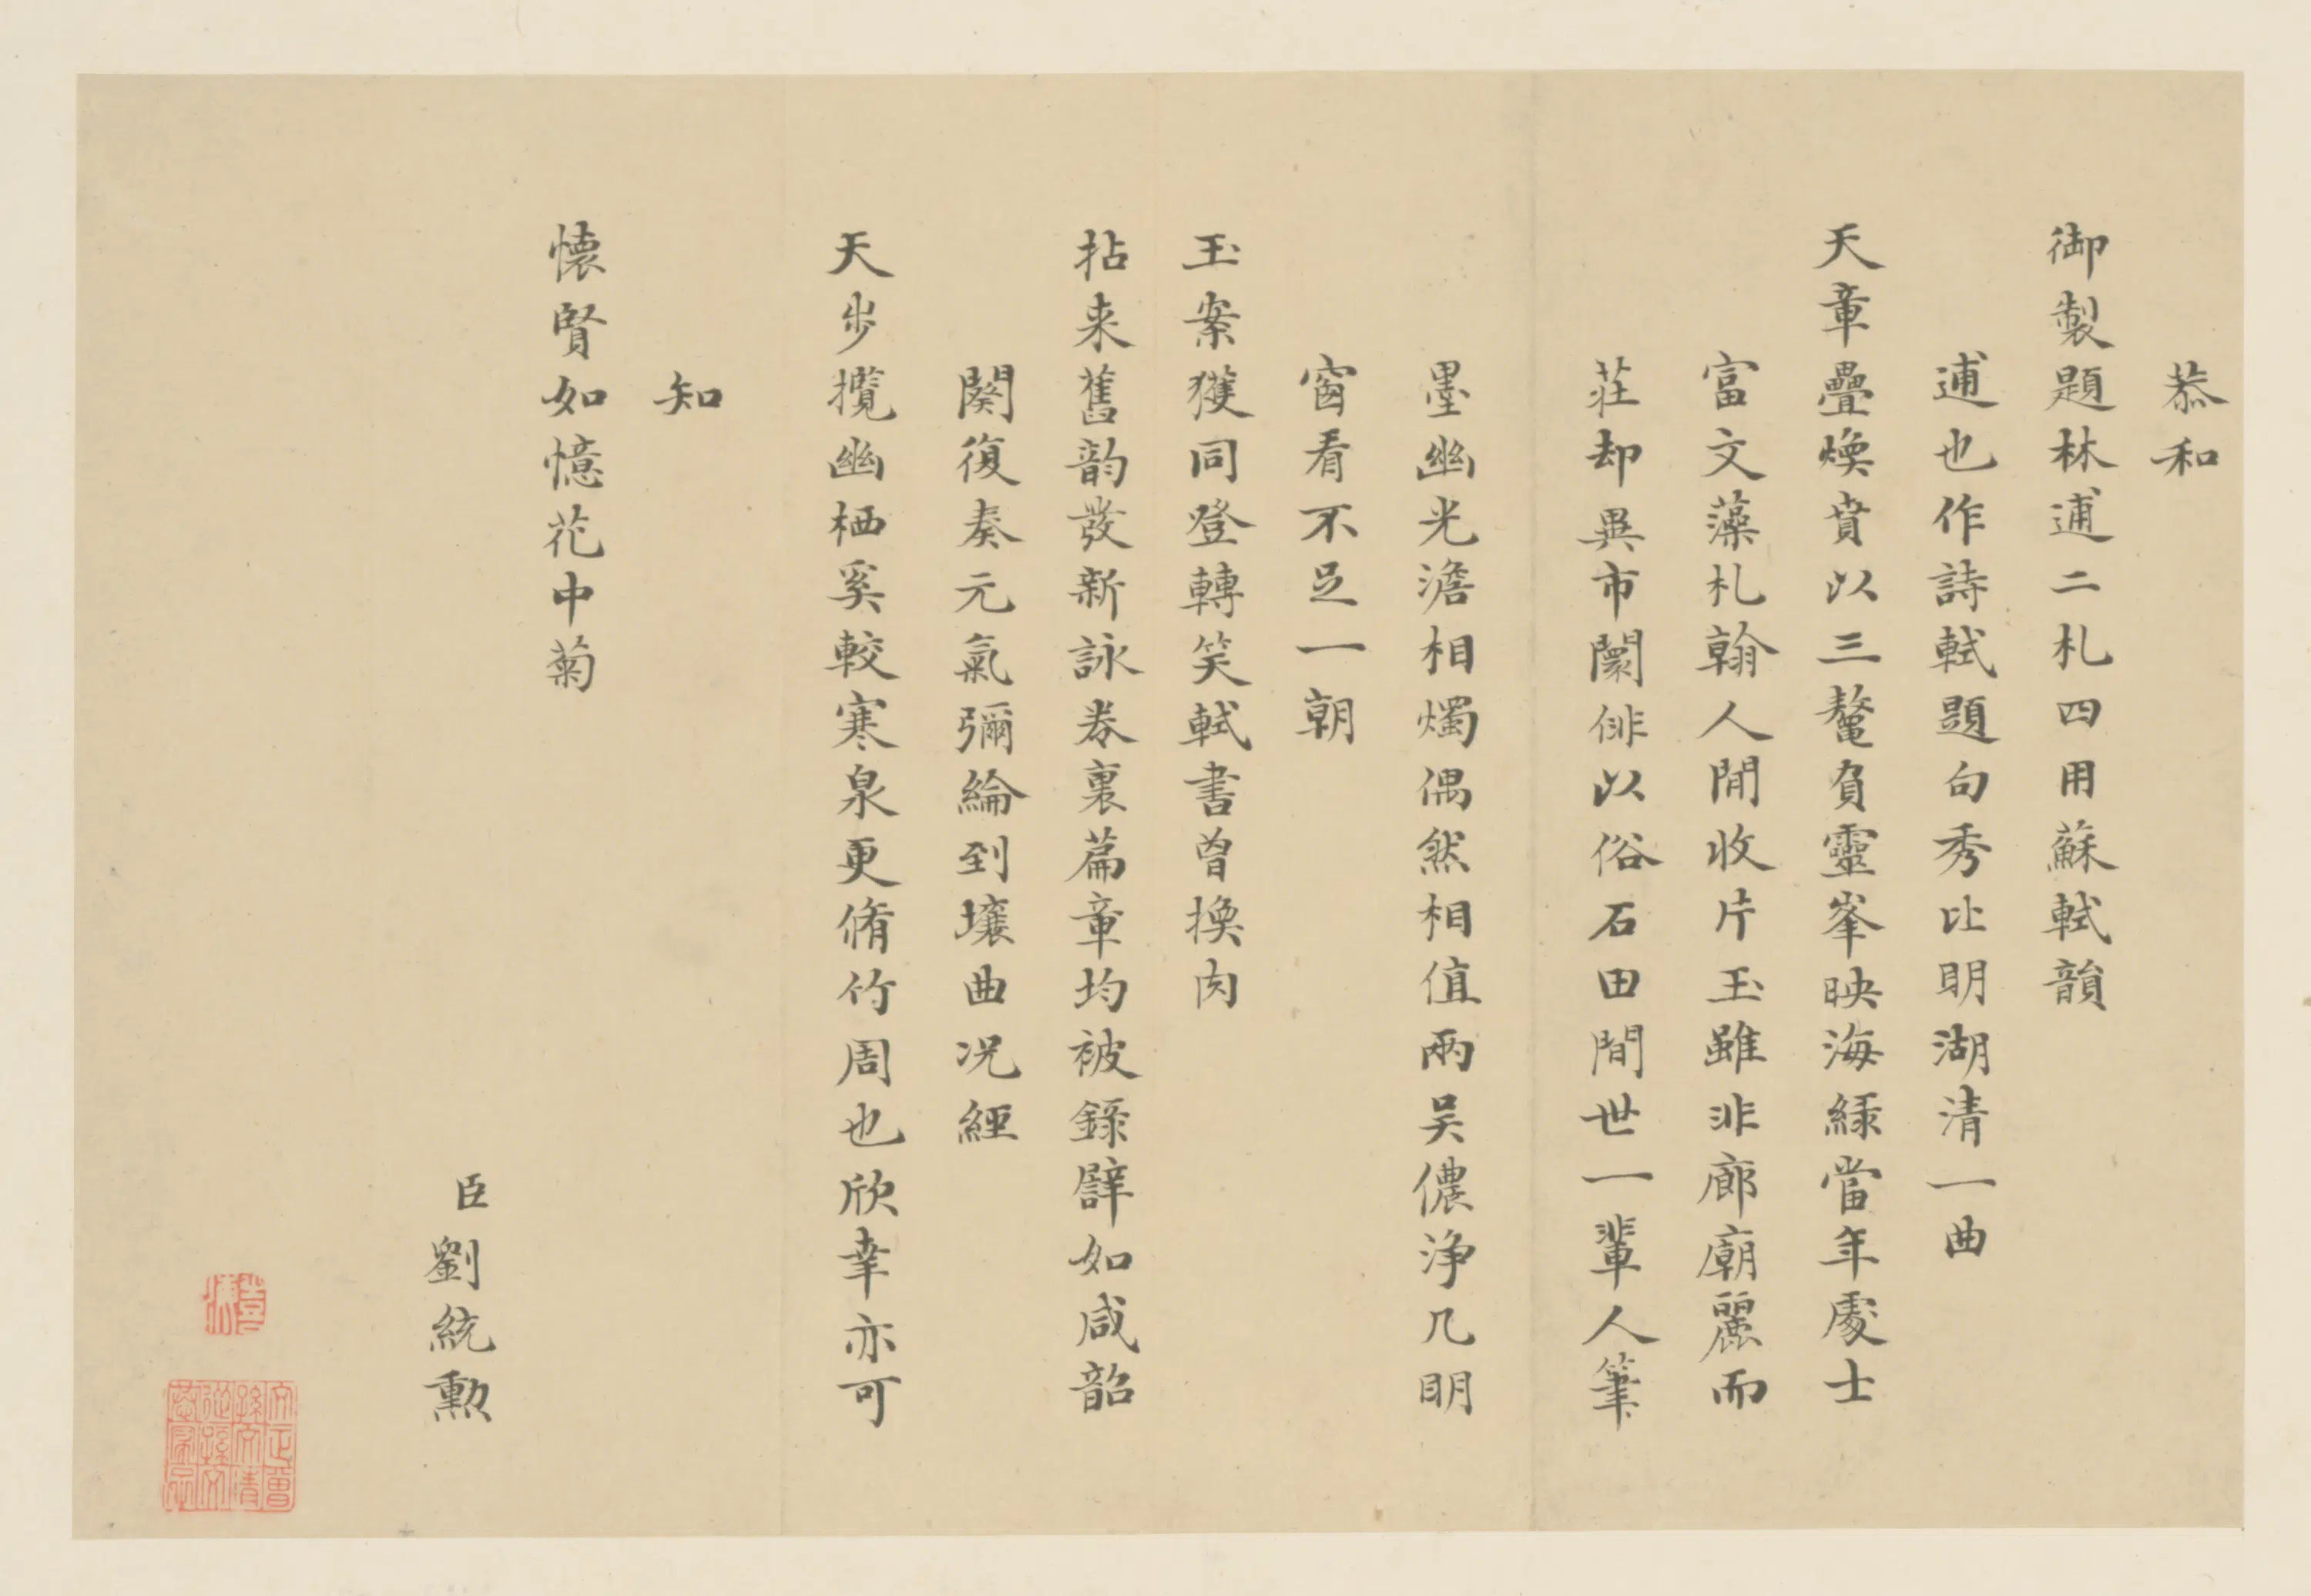 恭和
御製題林逋二札四用蘇軾韻
逋也作詩軾題句秀比明湖清一曲
天章疊煥賁以三鼇負靈峯映海綠當年處士
富文藻札翰人間收片玉雖非廊廟麗而
莊却異市闤俳以俗石田間世一輩人筆
墨幽光澹相燭偶然相值兩吴儂淨几明
窗看不足一朝
玉案獲同登轉笑軾書曾換肉
拈来舊韵發新詠卷裏篇章均被錄譬如咸韶
闋復奏元氣彌綸到壤曲况經
天步攬幽栖奚較寒泉更脩竹周也欣幸亦可
知
懐賢如憶花中菊
臣劉統勲